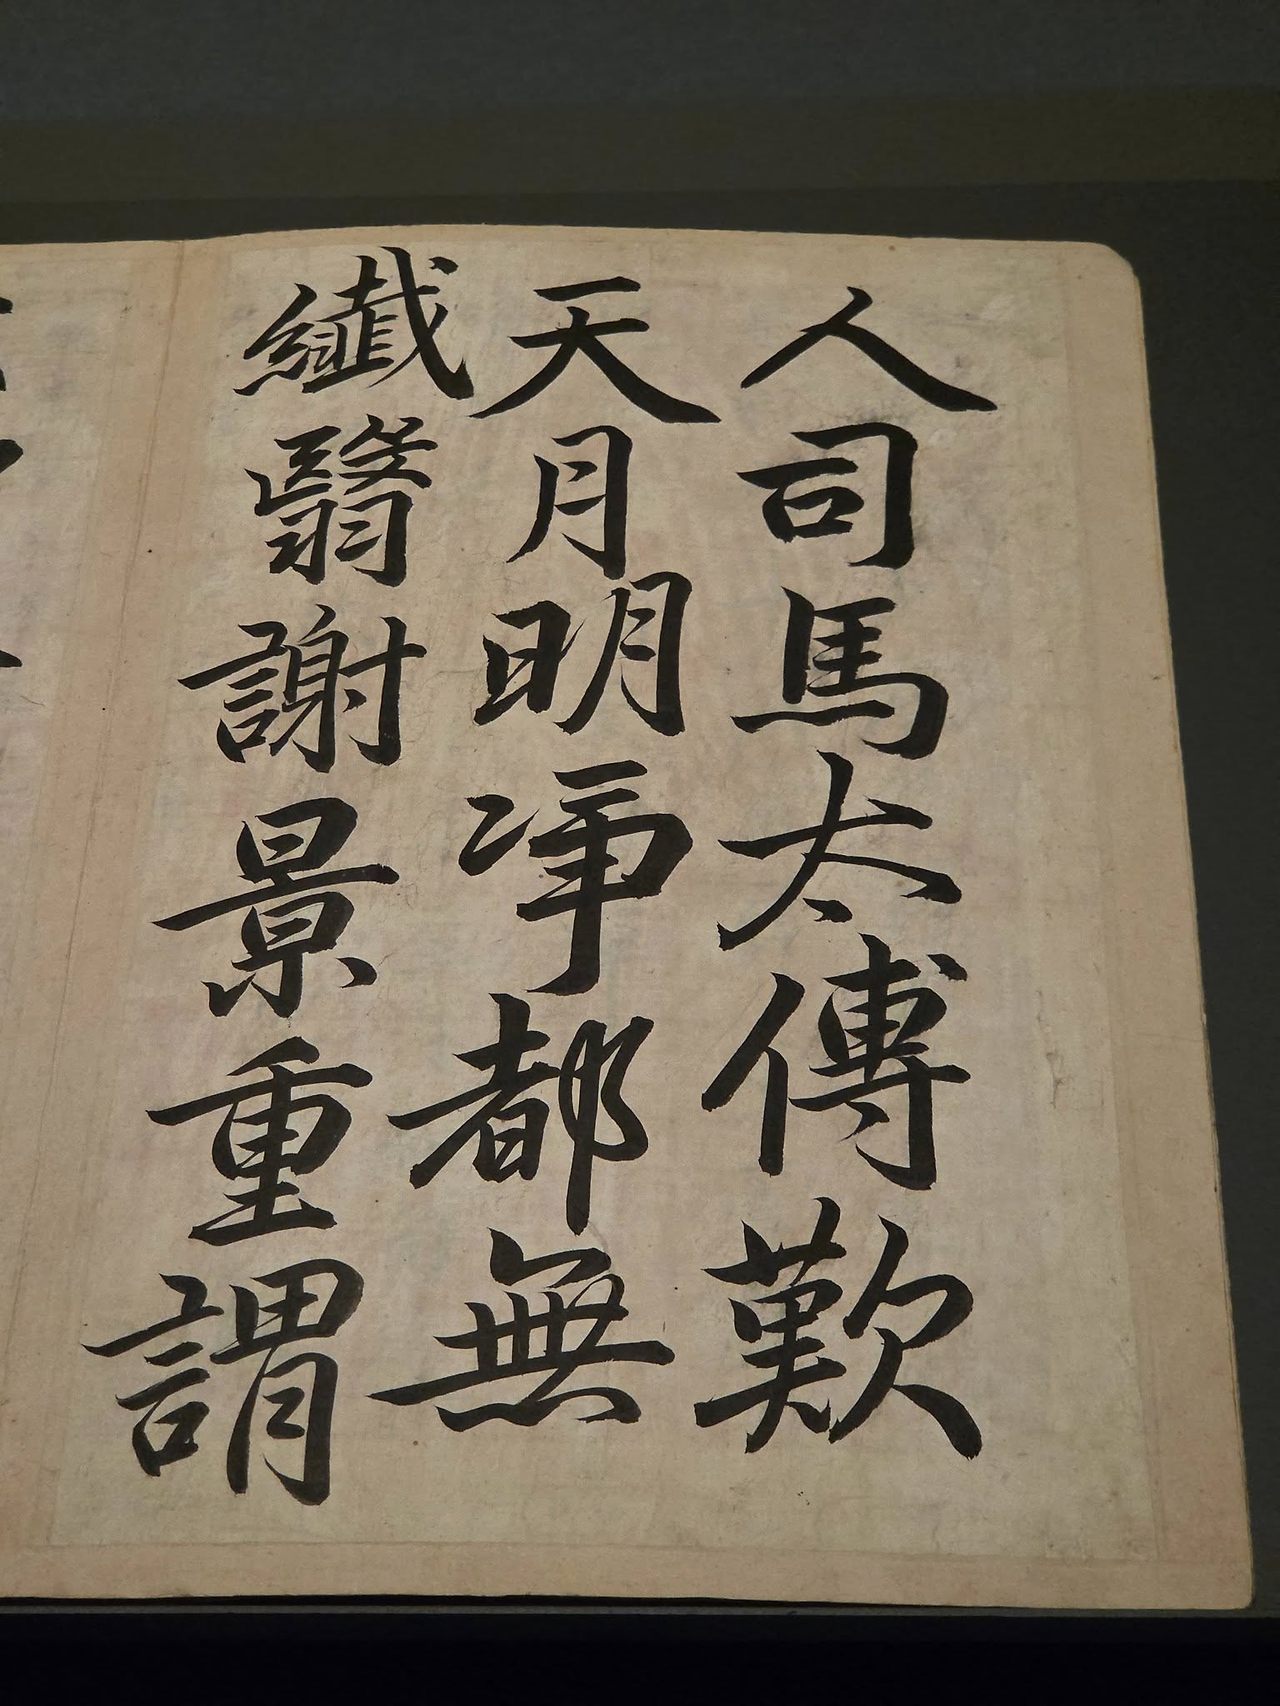 人司馬太傅歎
天月明淨都無
纖翳謝景重謂